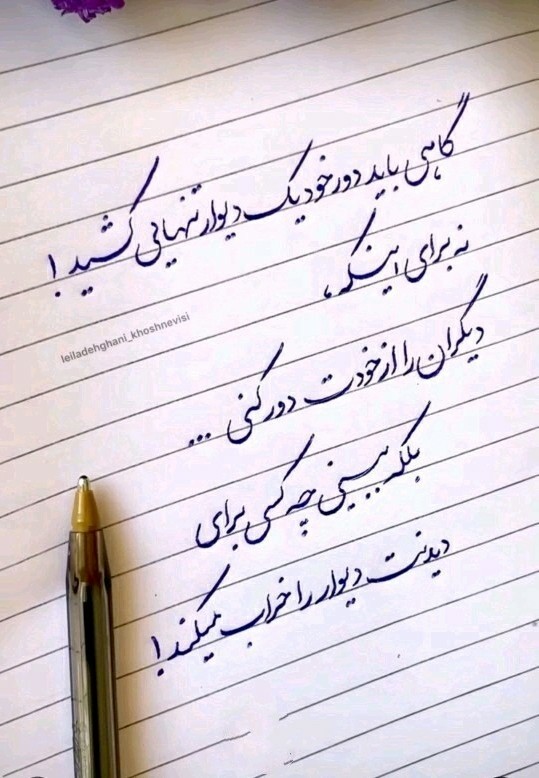 گاهی باید دور خود یک دیوار تنهایی کشید!
نه برای اینکه،
leiladehghani_khoshnevisi
دیگران را از خودت دور کنی ...
بلکه ببینی چه کسی برای
دیدنت دیوار را خراب میکند!